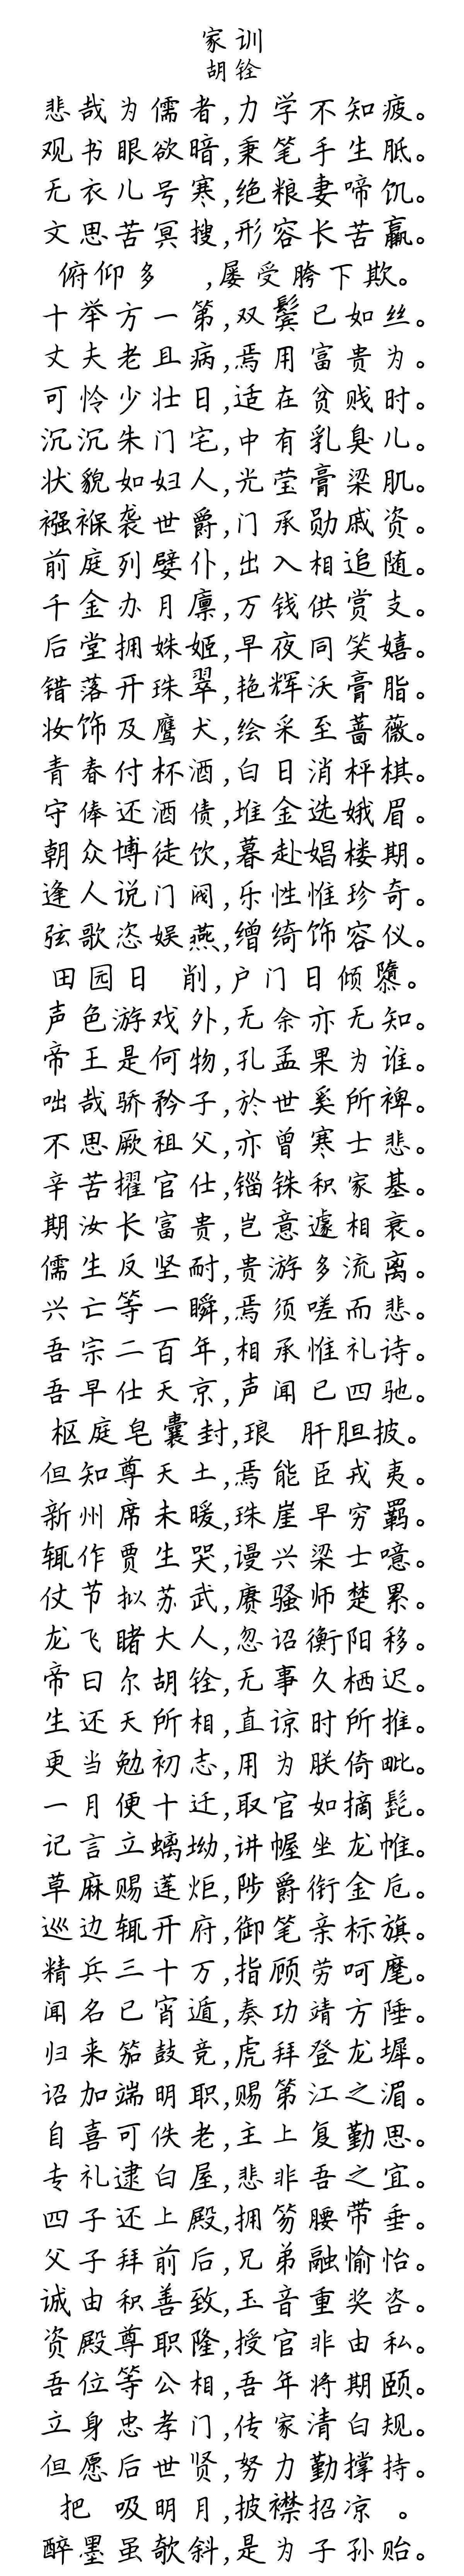 家训
胡铨
悲哉为儒者,力学不知疲。
观书眼欲暗,秉笔手生胝。
无衣儿号寒,绝粮妻啼饥。
文思苦冥搜,形容长苦羸。
俯仰多 ,屡受胯下欺。
十举方一第,双鬓已如丝。
丈夫老且病,焉用富贵为。
可怜少壮日,适在贫贱时。
沉沉朱门宅,中有乳臭儿。
状貌如妇人,光莹膏梁肌。
襁褓袭世爵,门承勋戚资。
前庭列嬖仆,出入相追随。
千金办月廪,万钱供赏支。
后堂拥姝姬,早夜同笑嬉。
错落开珠翠,艳辉沃膏脂。
妆饰及鹰犬,绘采至蔷薇。
青春付杯酒,白日消枰棋。
守俸还酒债,堆金选娥眉。
朝众博徒饮,暮赴娼楼期。
逢人说门阀,乐性惟珍奇。
弦歌恣娱燕,缯绮饰容仪。
田园日 削,户门日倾隳。
声色游戏外,无余亦无知。
帝王是何物,孔孟果为谁。
咄哉骄矜子,於世奚所裨。
不思厥祖父,亦曾寒士悲。
辛苦擢官仕,锱铢积家基。
期汝长富贵,岂意遽相衰。
儒生反坚耐,贵游多流离。
兴亡等一瞬,焉须嗟而悲。
吾宗二百年,相承惟礼诗。
吾早仕天京,声闻已四驰。
枢庭皂囊封,琅 肝胆披。
但知尊天土,焉能臣戎夷。
新州席未暖,珠崖早穷羁。
辄作贾生哭,谩兴梁士噫。
仗节拟苏武,赓骚师楚累。
龙飞睹大人,忽诏衡阳移。
帝曰尔胡铨,无事久栖迟。
生还天所相,直谅时所推。
更当勉初志,用为朕倚毗。
一月便十迁,取官如摘髭。
记言立螭坳,讲幄坐龙帷。
草麻赐莲炬,陟爵衔金卮。
巡边辄开府,御笔亲标旗。
精兵三十万,指顾劳呵麾。
闻名已宵遁,奏功靖方陲。
归来笳鼓竞,虎拜登龙墀。
诏加端明职,赐第江之湄。
自喜可佚老,主上复勤思。
专礼逮白屋,悲非吾之宜。
四子还上殿,拥笏腰带垂。
父子拜前后,兄弟融愉怡。
诚由积善致,玉音重奖咨。
资殿尊职隆,授官非由私。
吾位等公相,吾年将期颐。
立身忠孝门,传家清白规。
但愿后世贤,努力勤撑持。
把 吸明月,披襟招凉 。
醉墨虽欹斜,是为子孙贻。